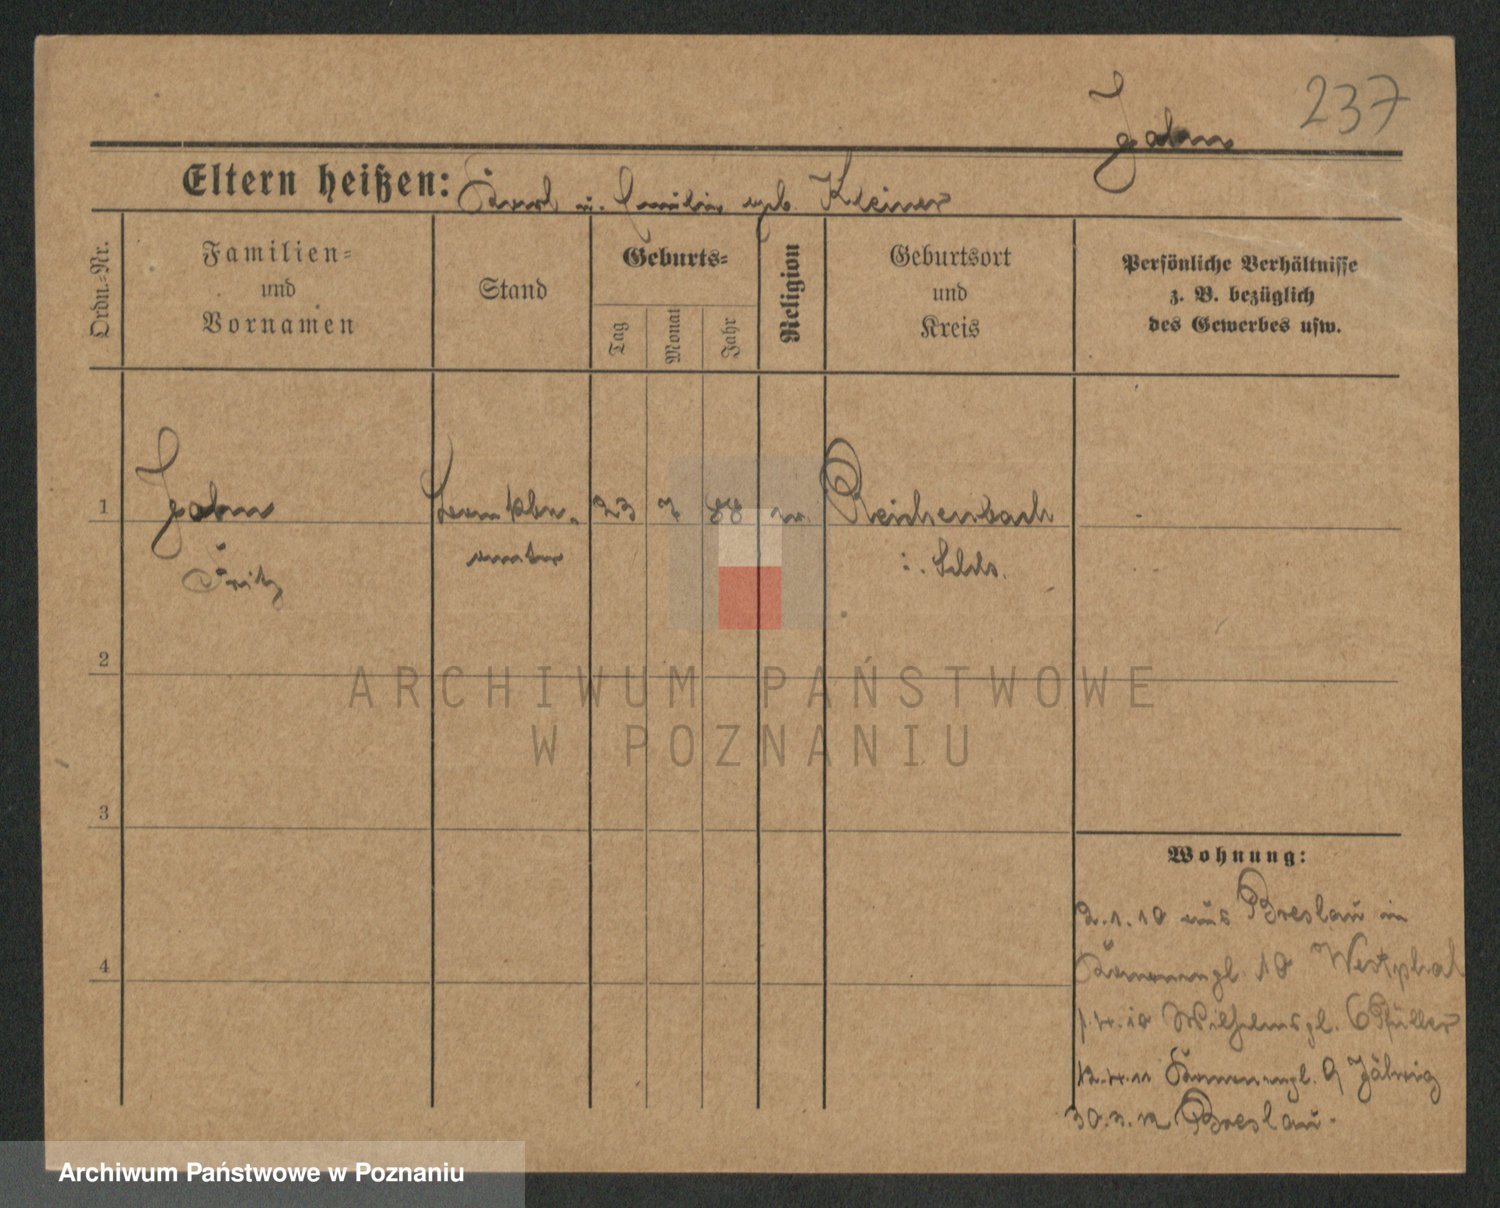 237
Jahn
Eltern heißen: Karl u. Emilie geb. Kleiner
Ordn.=Nr.
Familien=
und
Vornamen
Stand
Geburts=
Tag
Monat
Jahr
Religion
Geburtsort
und
Kreis
Persönliche Verhältnisse
z. B. bezüglich
des Gewerbes usw.
1
Jahn
Fritz
23 7 88
Reichenbach
i. Schls.
2
3
4
Wohnung:
2.1.10 aus Breslau in
10 Westphal
1.4.10 Wilhelmspl. 6 Müller
12.4.11 9 Jähnig
30.3.12 Breslau.
ARCHIWUM PAŃSTWOWE
W POZNANIU
Archiwum Państwowe w Poznaniu